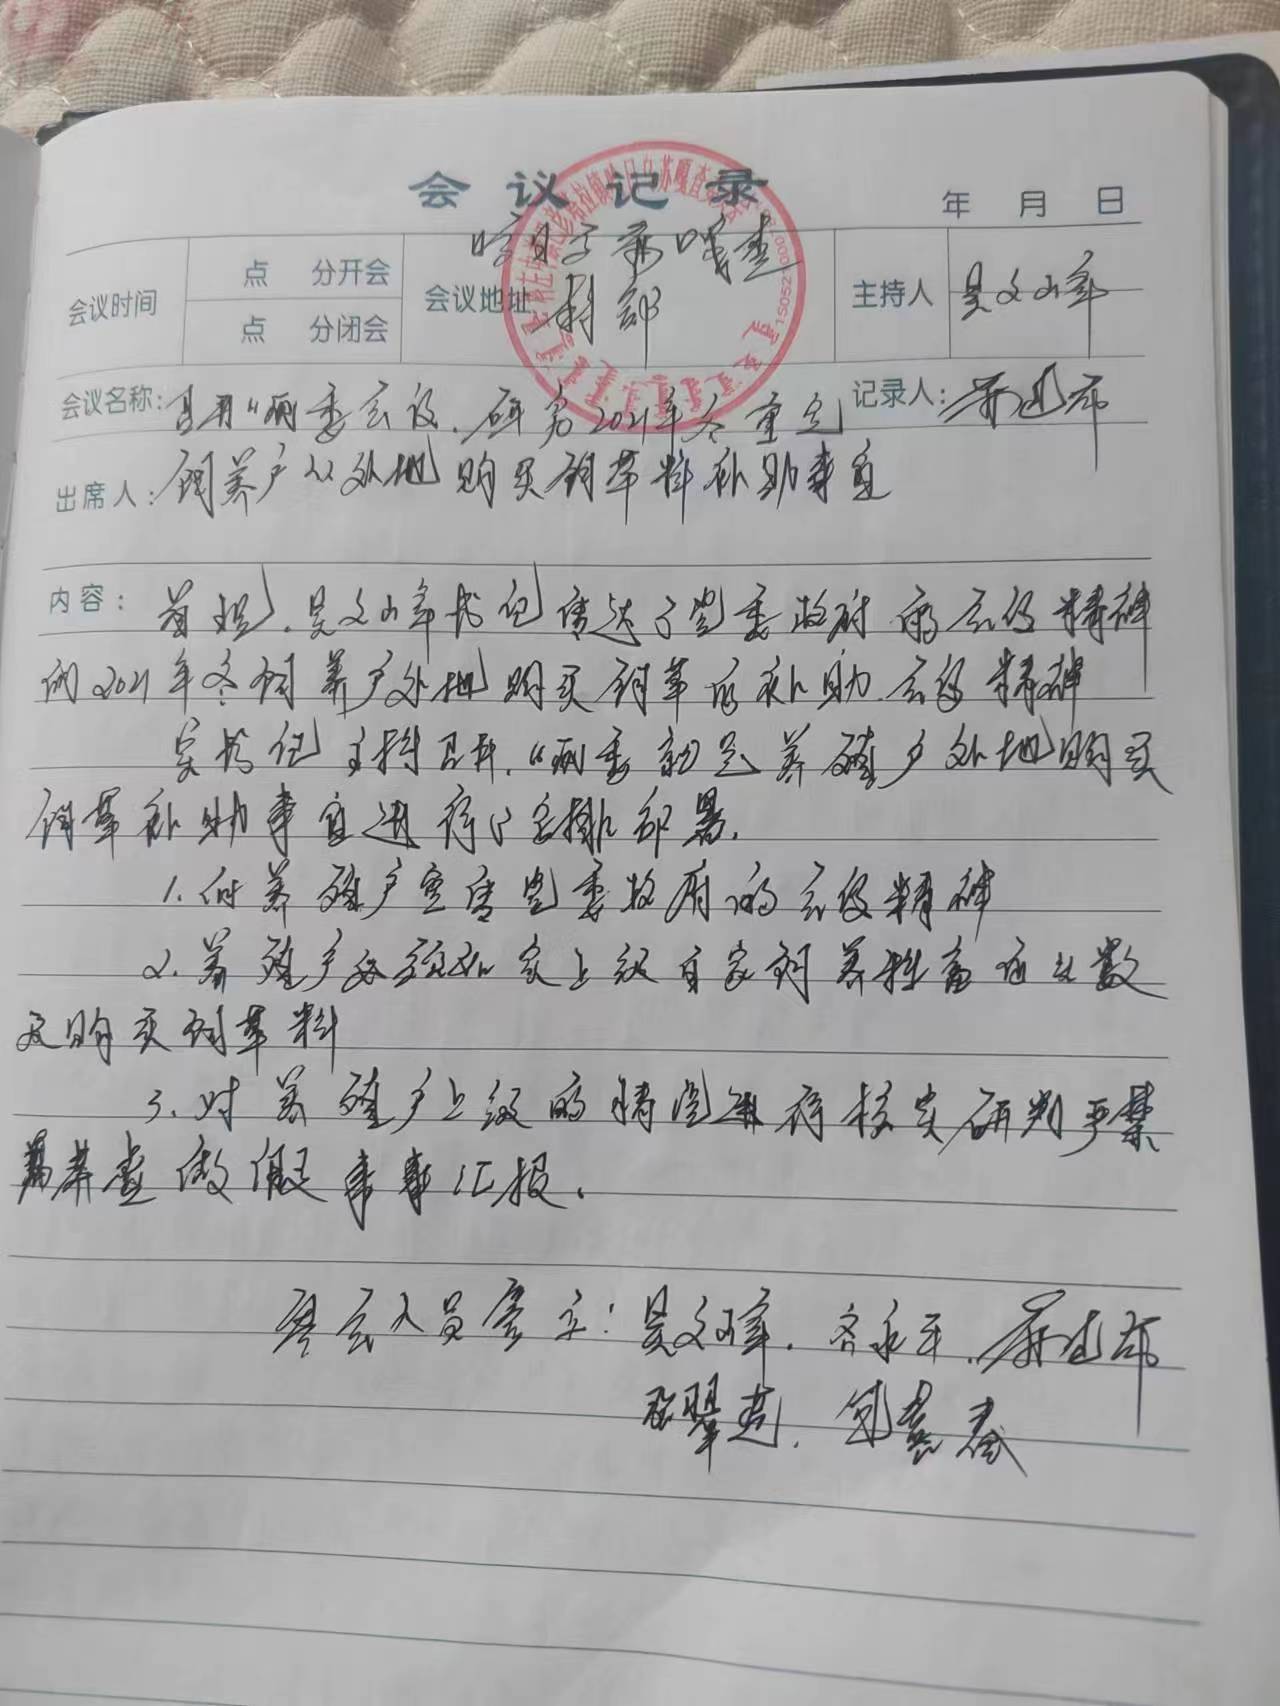 会议记录
年 月 日
会议时间 点 分开会 会议地址 哈日乌苏嘎查 主持人 吴文峰
点 分闭会 村部
会议名称: 召开"两委会议,研究2021年冬 记录人:
出席人: 饲养户从外地购买饲草料补助事宜
内容: 首先,吴文峰书记传达了党委政府的会议精神
的2021年冬饲养户外地购买饲草的补助会议精神
吴书记主持召开,"两委就是养殖户外地购买
饲草补助事宜进行了安排部署.
1.向养殖户宣传党委政府的会议精神
2.养殖户必须如实上报自家饲养牲畜的头数
及购买饲草料
3.对养殖户上级的情况进行核实研判严禁
弄虚做假 事事汇报.
参会人员签字:吴文峰.齐永平.
包春